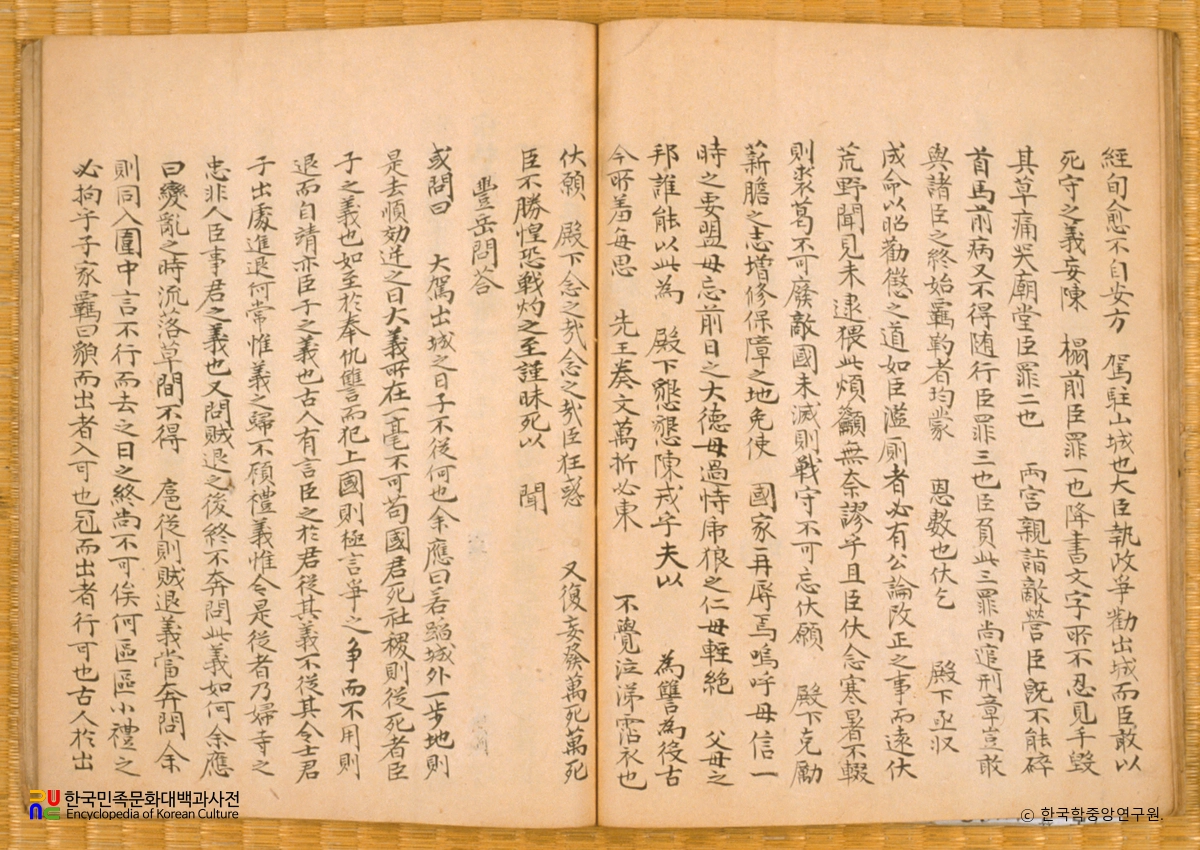 經旬愈不自安方　駕駐山城也大臣執政爭勸出城而臣敢以
死守之義妄陳　榻前臣罪一也降書文字所不忍見手毀
其草痛哭廟堂臣罪二也　兩宮親詣敵營臣旣不能碎
首馬前病又不得随行臣罪三也臣負此三罪尚逭刑章豈敢
與諸臣之終始羈靮者均蒙　恩數也伏乞　殿下亟収
成命以昭勸懲之道如臣濫厠者必有公論改正之事而遠伏
荒野聞見未逮猥此煩籲無奈謬乎且臣伏念寒暑不輟
則裘葛不可廢敵國未滅則戰守不可忘伏願　殿下克勵
薪膽之志增修保障之地免使　國家再辱焉嗚呼毋信一
時之要盟毋忘前日之大德毋過恃席狼之仁毋輕絶　父母之
邦誰能以此為　殿下懇懇陳戒乎夫以　為讐為役古
今所羞每思　先王奏文萬折必東　不覺泣涕霑衣也
伏願　殿下念之㢤念之㢤臣狂惑　又復妄發萬死萬死
臣不勝惶恐戰灼之至謹昧死以　聞
豐岳問答
或問曰　大駕出城之日子不從何也余應曰若蹈城外一步地則
是去順効逆之日大義所在一毫不可苟國君死社稷則從死者臣
子之義也如至於奉仇讐而犯上國則極言爭之争而不用則
退而自靖亦臣子之義也古人有言臣之於君從其義不從其令士君
子出處進退何常惟義之歸不顧禮義惟令是從者乃婦寺之
忠非人臣事君之義也又問賊退之後終不奔問此義如何余應
曰變亂之時流落草間不得　扈從則賊退義當奔問余
則同入圍中言不行而去之日之終尚不可俟何區區小禮之
必拘乎子家羈曰貌而出者入可也冦而出者行可也古人於出
한국민족문화대백과사전
Encyclopedia of Korean Culture
ⓒ 한국학중앙연구원.